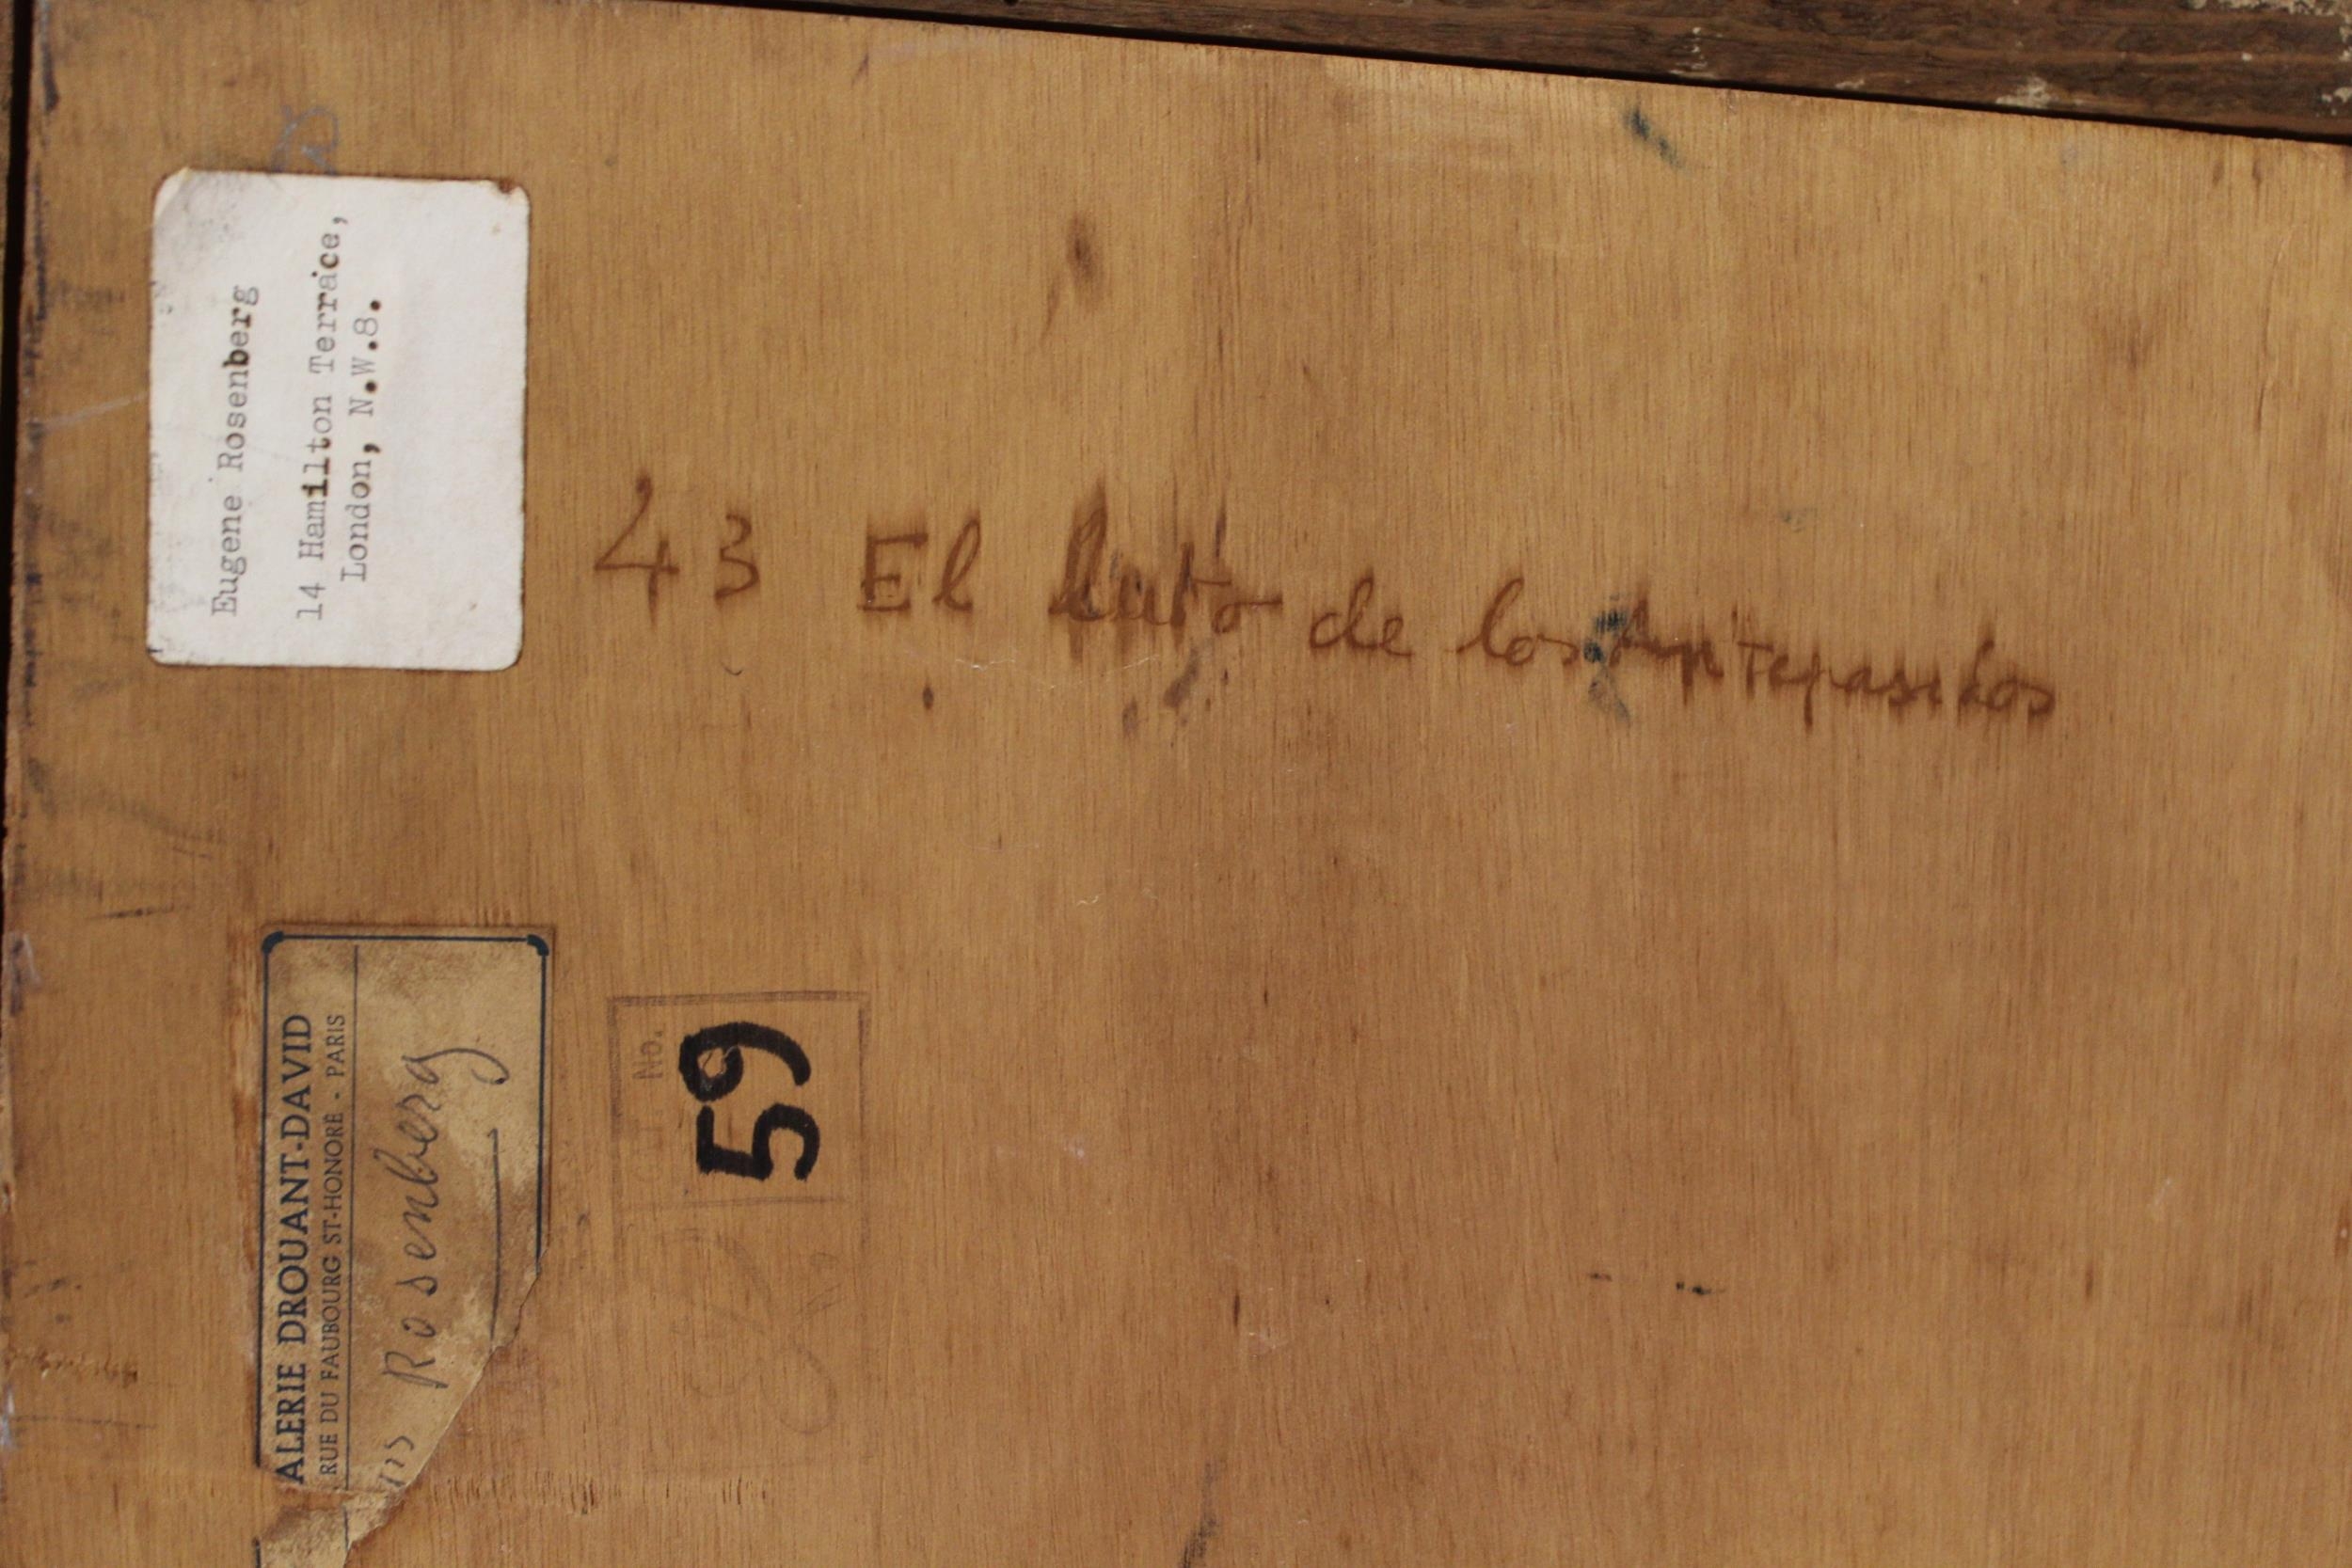 Eugene Rosenberg
14 Hamilton Terrace,
London, N.W.8.
43 El luto de los antepasados
ALERIE DROUANT-DAVID
RUE DU FAUBOURG ST-HONORÉ - PARIS
Rosenberg
No.
59